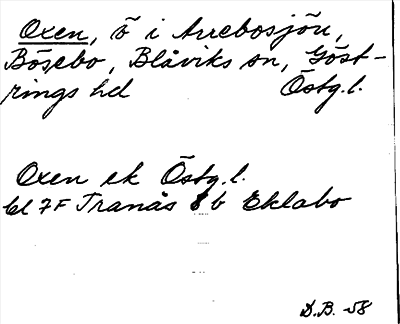 Oxen, ö i Arrebosjön,
Bösebo, Blåviks sn, Göst-
rings hd Östg.l.
Oxen ek Östg.l.
bl 7F Tranås 8 b Eklabo
D.B. -58